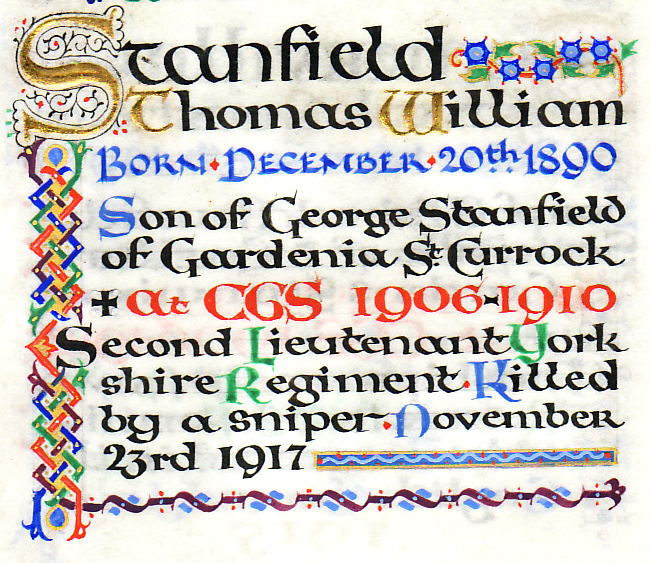 Stanfield
Thomas William
Born · December · 20th 1890
Son of George Stanfield
of Gardenia St. Currock
at CGS 1906-1910
Second Lieutenant York
shire Regiment · Killed
by a sniper · November
23rd 1917